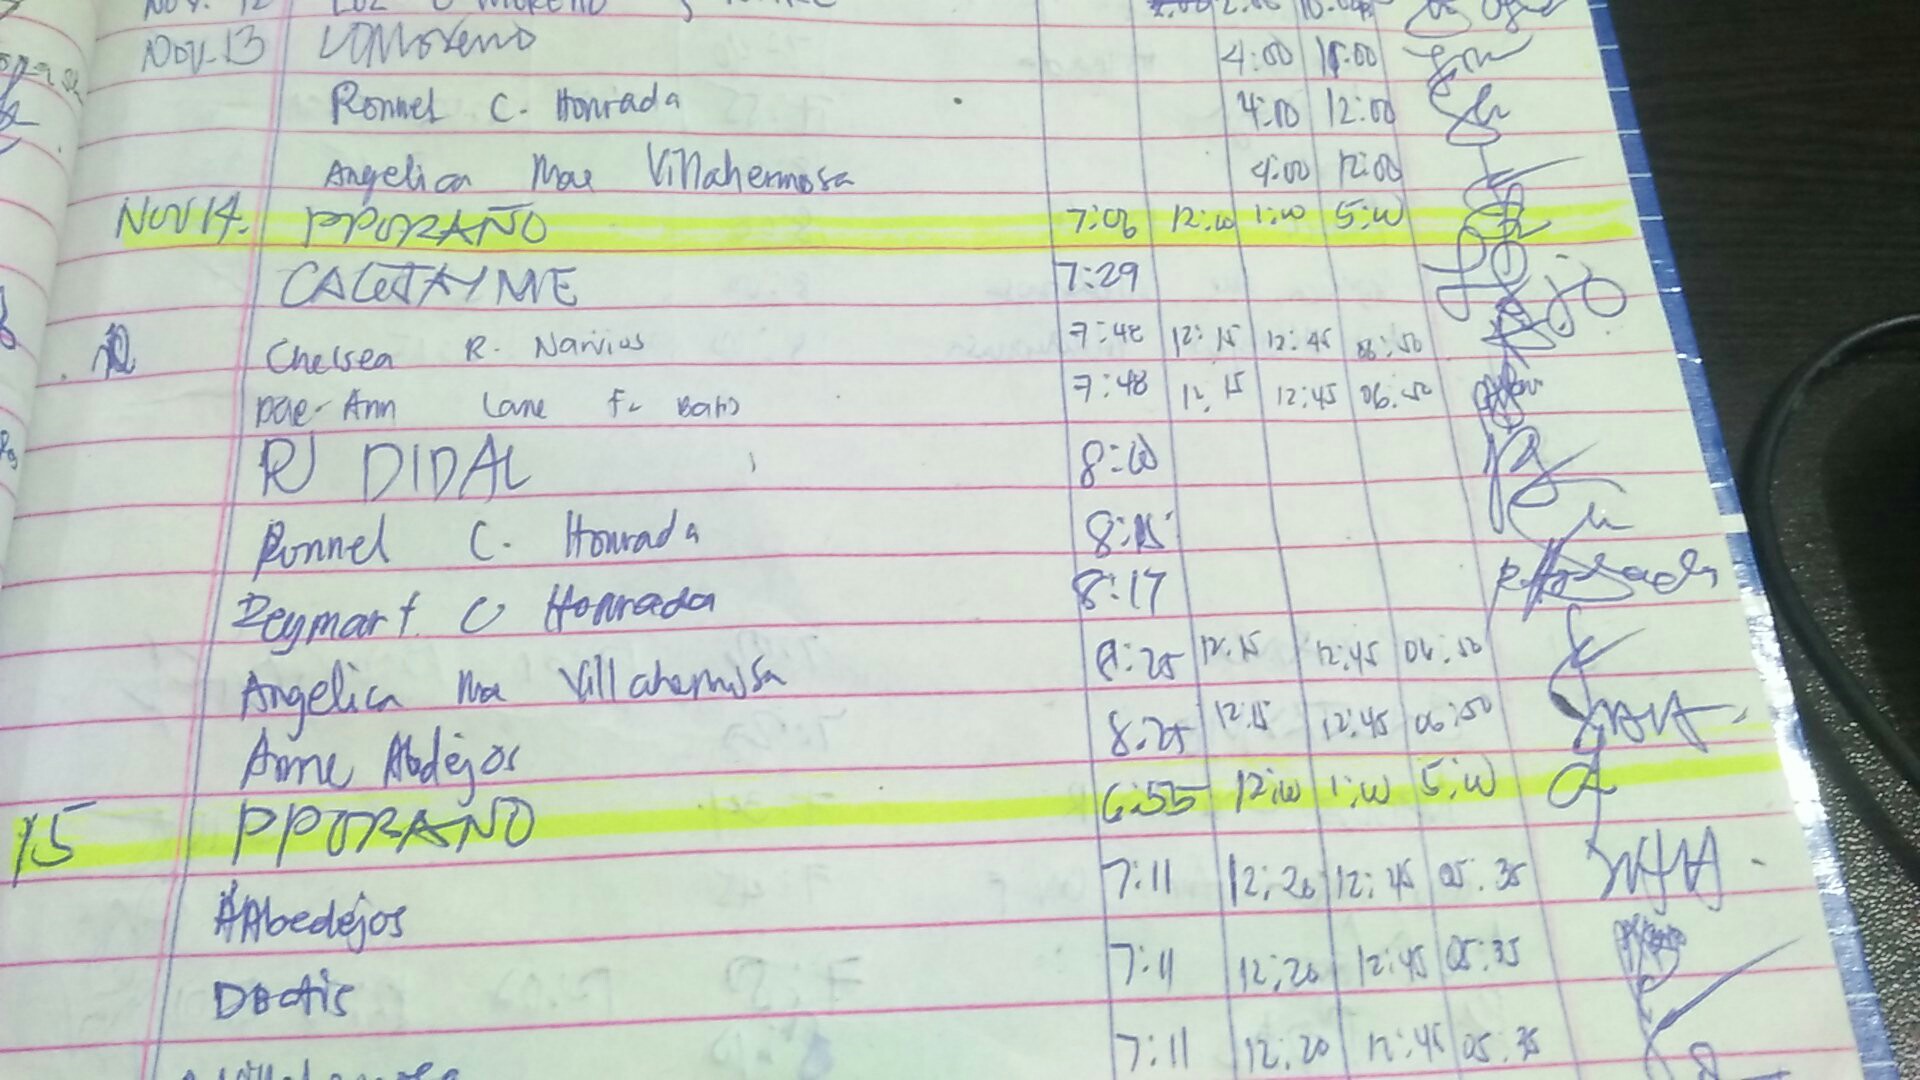 Nov. 13 LOMoreno 4:00 11:00
Ronnel C. Honrada 4:00 12:00
Angelica Mae Villahermosa 4:00 12:00
NOV 14. PPORAÑO 7:06 12:00 1:00 5:00
7:29
Chelsea R. Narvios 7:48 12:15 12:45 06:50
Dae-Ann Lane F. 7:48 12:15 12:45 06:50
RJ DIDAL 8:00
Ronnel C. Honrada 8:15
Zeymart C Honrada 8:17
Angelica Mae Villahermosa 8:25 12:15 12:45 06:50
Anne Abdejos 8:25 12:15 12:45 06:50
15 PPORAÑO 6:55 12:00 1:00 5:00
AAbedejos 7:11 12:20 12:45 05:35
7:11 12:20 12:45 05:35
7:11 12:20 12:45 05:35